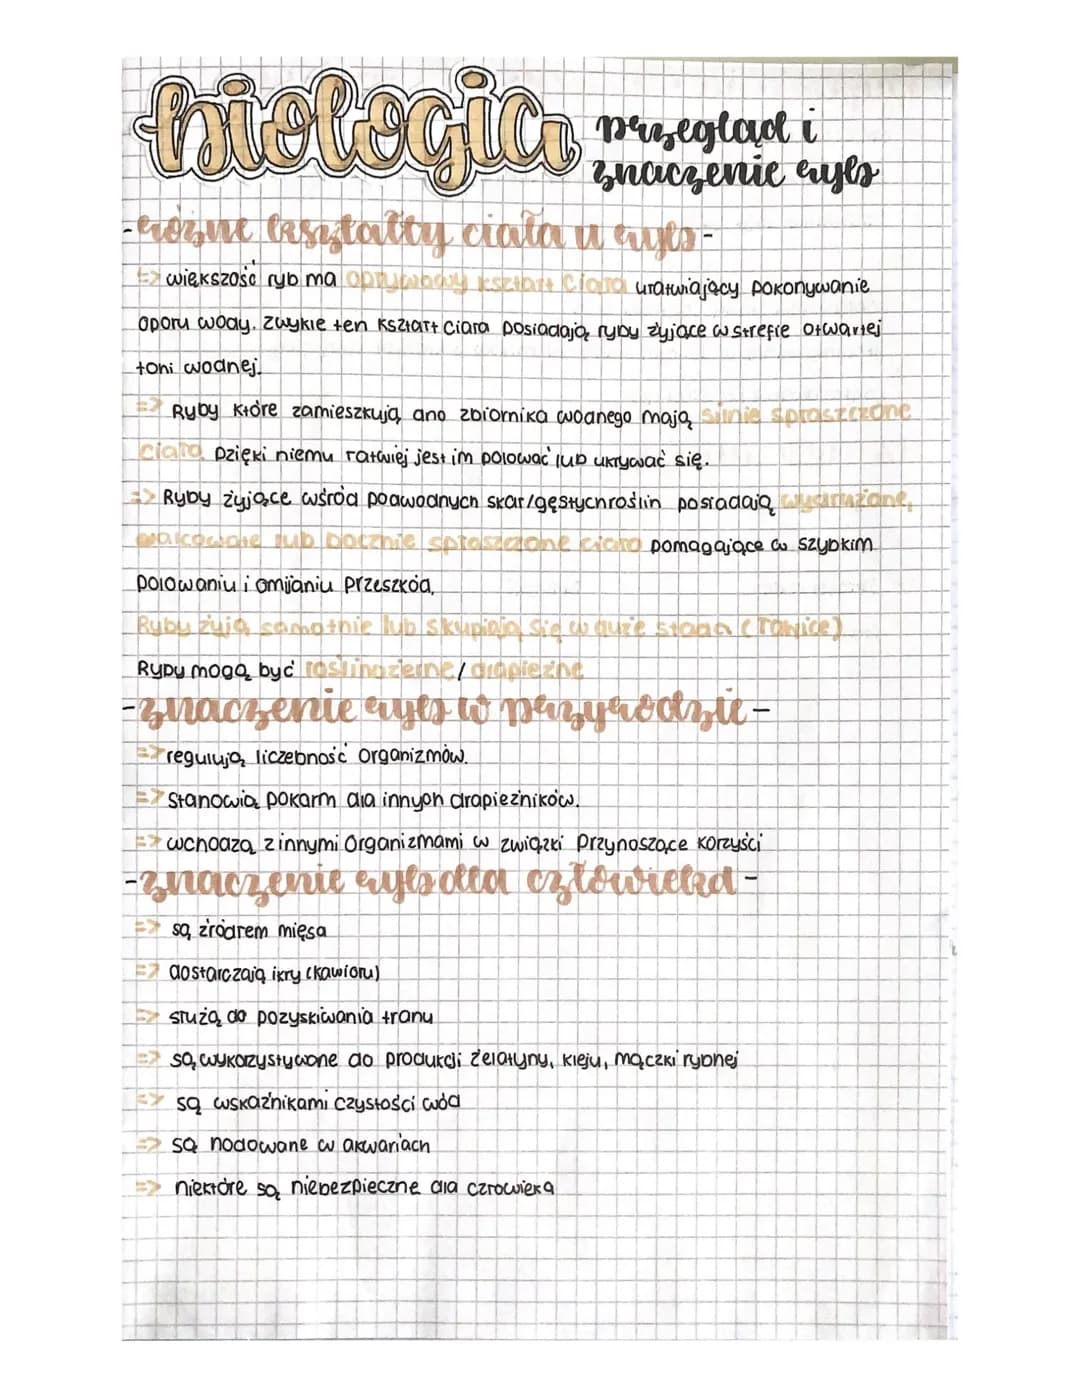 biologia
przegląd i
znaczenie ryb
-różne kształty ciała u ryb-
=> większość ryb ma opływowy kształt ciała ułatwiający pokonywanie
oporu wody. Zwykle ten kształt ciała posiadają ryby żyjące w strefie otwartej
toni wodnej.
=> Ryby które zamieszkują dno zbiornika wodnego mają silnie spłaszczone
ciało. Dzięki niemu łatwiej jest im polować lub ukrywać się.
=> Ryby żyjące wśród podwodnych skał/gęstych roślin posiadają wydłużone,
walcowate lub bocznie spłaszczone ciało pomagające w szybkim
polowaniu i omijaniu przeszkód.
Ryby żyją samotnie lub skupiają się w duże stada (ławice)
Ryby mogą być roślinożerne/drapieżne
-znaczenie ryb w przyrodzie-
=> regulują liczebność organizmów.
=> Stanowią pokarm dla innych drapieżników.
=> wchodzą z innymi organizmami w związki przynoszące korzyści
-znaczenie ryb dla człowieka-
=> są źródłem mięsa
=> dostarczają ikry (kawioru)
=> służą do pozyskiwania tranu
=> są wykozystywane do produkcji żelatyny, kleju, mączki rybnej
=> są wskaźnikami czystości wód
=> są hodowane w akwariach
=> niektóre są niebezpieczne dla człowieka